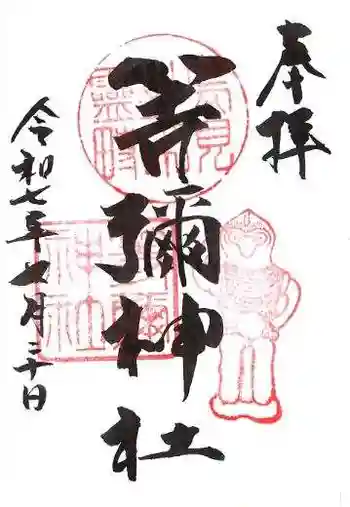 奉拝
等彌神社
令和七年七月三十日